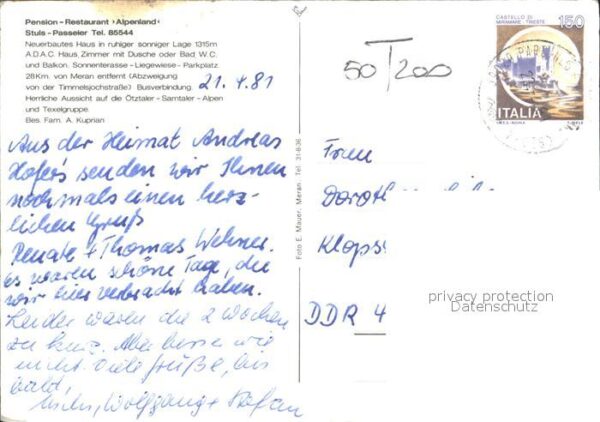 Pension-Restaurant ›Alpenland‹
Stuls-Passeier Tel. 85544
Neuerbautes Haus in ruhiger sonniger Lage 1315m
A.D.A.C. Haus, Zimmer mit Dusche oder Bad, W.C.
und Balkon. Sonnenterasse - Liegewiese - Parkplatz.
28Km. von Meran entfernt (Abzweigung
von der Timmelsjochstraße) Busverbindung.
Herrliche Aussicht auf die Ötztaler - Sarntaler - Alpen
und Texelgruppe.
Bes. Fam. A. Kuprian
21.4.81
Aus der Heimat Andreas
Hofer's senden wir Ihnen
nochmals einen herz-
lichen Gruß
Renate + Thomas Wehner.
es waren schöne Tage, die
wir hier verbracht haben.
Leider waren die 2 Wochen
zu kurz. Aber besser wie
nicht. Viele Grüße, bis
bald,
Wolfgang + Stefan
Foto E. Mauer, Meran. Tel. 31-8-36
50/200
CASTELLO DI
MIRAMARE - TRIESTE
150
ITALIA
Frau
Doroth
Klops
DDR 4
privacy protection
Datenschutz